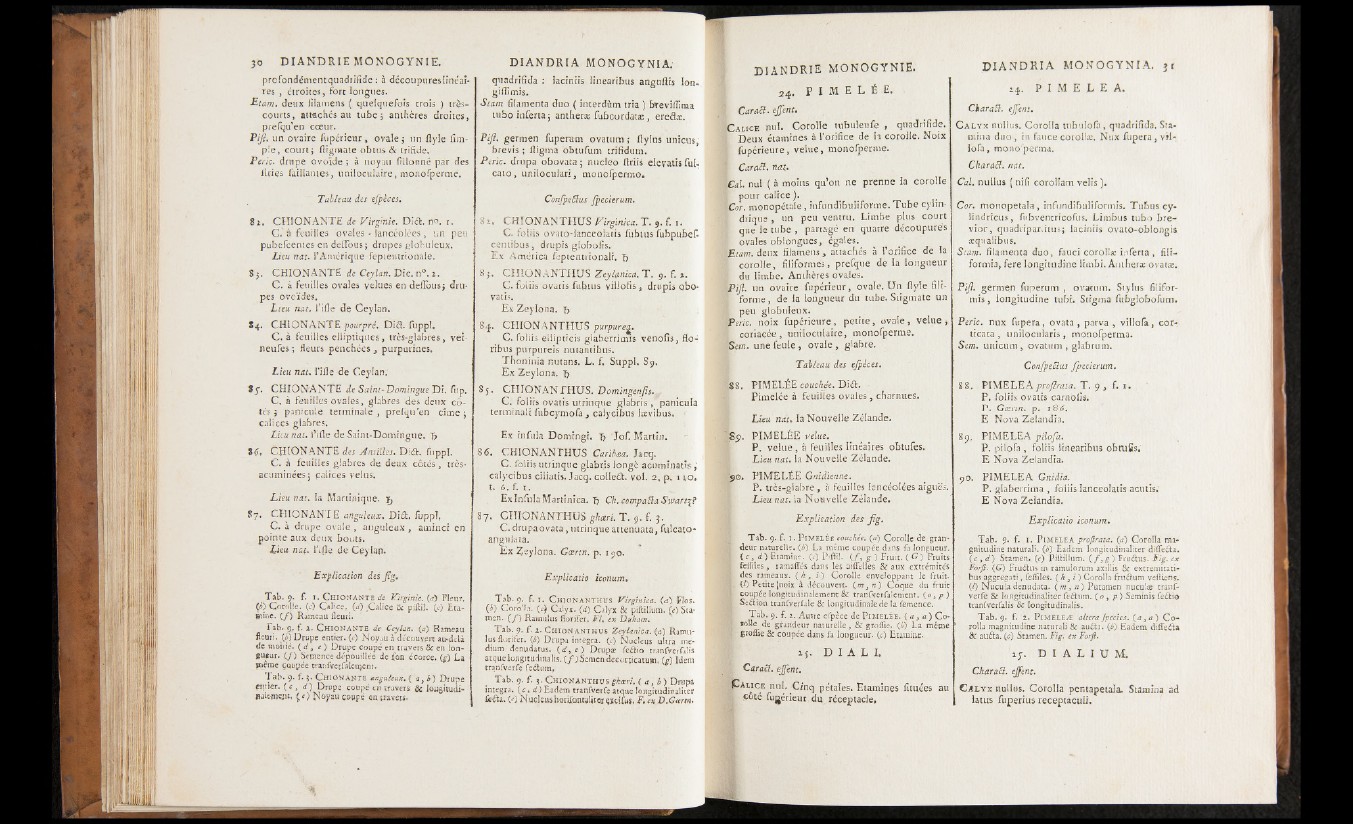 30 DIANDRIE MONOGYNIE.
profondément quadrifide : à découpures linéai-
res , étroites, fort longues.
Etam. deux filamens ( quelquefois trois ) très-
courts, attachés au tube ; anthères droites,
presqu'en cœur.
Pist. un ovaire supérieur, ovale ; un style sim-
ple, court ; stigmate obtus & trifide.
Peric. drupe ovoïde ; à noyau sillonné par des
stries saillantes, uniloculaire, monosperme.
Tableau des espèces.
82. CHIONANTE de Virginie. Dict. no. 1.
C. à feuilles ovales - lancéolées, un peu
pubescentes en dessous ; drupes globuleux.
Lieu nat. l'Amérique septentrionale.
83. CHIONANTE de Ceylan. Dic. n°. 2.
C. à feuilles ovales velues en dessous ; dru-
pes ovoïdes.
Lieu nat. l'isle de Ceylan.
84. CHIONANTE pourpré. Dict. suppl.
C. à feuilles elliptiques, très-glabres, vei-
neuses ; fleurs penchées, purpurines.
Lieu nat. l'isle de Ceylan.
85. CHIONANTE de Saint-Domingue Di. sup.
C. à feuilles ovales, glabres des deux cô-
tés ; panicule terminale, presqu'en cime ;
calices glabres.
Lieu nat. l'isle de Saint-Domingue. ♄
86. CHIONANTE des Antilles. Dict. suppl.
C. à feuilles glabres de deux côtés, très-
acuminées ; calices velus.
Lieu nat. la Martinique. ♄
87. CHIONANTE anguleux. Dict. suppl.
C. à drupe ovale, anguleux, aminci en
pointe aux deux bouts.
Lieu nat. l'isle de Ceylan.
Explication des fig.
Tab. 9. f. 1. CHIONANTE de Virginie. (a) Fleur.
(b) Corolle. (c) Calice. (d) Calice & pistil. (e) Eta-
mine. (f) Rameau fleuri.
Tab. 9. f. 2. CHIONANTE de Ceylan. (a) Rameau
fleuri. (b) Drupe entier. (c) Noyau à découvert au-delà
de moitié. (d, e) Drupe coupé en travers & en lon-
gueur. (f) Semence dépouillée de son écorce. (g) La
même coupée transversalement.
Tab. 9. f. 3. CHIONANTE anguleux. (a, b) Drupe
entier. (c, d) Drupe coupé en travers & longitudi-
nalement. (e) Noyau coupé en travers.
DIANDRIA MONOGYNIA.
quadrifida : laciniis linearibus angustis lon-
gissimis.
Stam filamenta duo ( interdùm tria ) brevissima
tubo inserta ; antheræ subcordatæ, erectæ.
Pist. germen superum ovatum ; stylus unicus,
brevis ; stigma obtusum trifidum.
Peric. drupa obovata ; nucleo striis elevatis sul-
cato, uniloculari, monospermo.
Conspectus specierum.
82. CHIONANTHUS Virginica. T. 9. f. 1.
C. foliis ovato-lanceolatis subtus subpubes-
centibus, drupis globosis.
Ex America septentrionali. ♄
83. CHIONANTHUS Zeylanica. T. 9. f. 2.
C. foliis ovatis subtus villosis, drupis obo-
vatis.
Ex Zeylona. ♄
84. CHIONANTHUS purpurea.
C. foliis ellipticis glaberrimis venosis, flo-
ribus purpureis nutantibus.
Thoninia nutans. L. f. Suppl. 89.
Ex Zeylona. ♄
85. CHIONANTHUS. Domingensis.
C. foliis ovatis utrinque glabris, panicula
terminali subcymosa, calycibus lævibus.
Ex insula Domingi. ♄ Jos. Martin.
86. CHIONANTHUS Caribæa. Jacq.
C. foliis utrinque glabris longè acuminatis,
calycibus ciliatis. Jacq. collect. vol. 2, p. 110,
t. 6. f. 1.
Ex Insula Martinica. ♄ Ch. compacta Swartz ?
87. CHIONANTHUS ghæri. T. 9. f. 3.
C. drupa ovata, utrinque attenuata, sulcato-
angulata.
Ex Zeylona. Gærtn. p. 190.
Explicatio iconum.
Tab. 9. f. 1. CHIONANTHUS Virginica. (a) Flos.
(b) Corolla. (c) Calyx. (d) Calyx & pistillum. (e) Sta-
men. (f) Ramulus florifer. Fl. ex Duham.
Tab. 9. f. 2. CHIONANTHUS Zeylanica. (a) Ramu-
lus florifer. (b) Drupa integra. (c) Nucleus ultra me-
dium denudatus. (d, e) Drupæ sectio transversalis
atque longitudinalis. (f) Semen decorticatum. (g) Idem
transverse sectum.
Tab. 9. f. 3. CHIONANTHUS ghæri. (a, b) Drupa
integra. (c, d) Eadem transverse atque longitudinaliter
secta. (e) Nucleus horisontaliter excisus. F. ex D. Gærtn.
DIANDRIE MONOGYNIE.
24. PIMELÉE.
Caract. essent.
CALICE nul. Corolle tubuleuse, quadrifide.
Deux étamines à l'orifice de la corolle. Noix
supérieure, velue, monosperme.
Caract. nat.
Cal. nul ( à moins qu'on ne prenne la corolle
pour calice ).
Cor. monopétale, infundibuliforme. Tube cylin-
drique, un peu ventru. Limbe plus court
que le tube, partagé en quatre découpures
ovales oblongues, égales.
Etam. deux filamens, attachés à l'orifice de la
corolle, filiformes, presque de la longueur
du limbe. Anthères ovales.
Pist. un ovaire supérieur, ovale. Un style fili-
forme, de la longueur du tube. Stigmate un
peu globuleux.
Peric. noix supérieure, petite, ovale, velue,
coriacée, uniloculaire, monosperme.
Sem. une seule, ovale, glabre.
Tableau des espèces.
88. PIMELÉE couchée. Dict.
Pimelée à feuilles ovales, charnues.
Lieu nat. la Nouvelle Zélande.
89. PIMELÉE velue.
P. velue, à feuilles linéaires obtuses.
Lieu nat. la Nouvelle Zélande.
90. PIMELÉE Gnidienne.
P. très-glabre, à feuilles lancéolées aiguës.
Lieu nat. la Nouvelle Zélande.
Explication des fig.
Tab. 9. f. 1. PIMELÉE couchée. (a) Corolle de gran-
deur naturelle. (b) La même coupée dans sa longueur.
(c, d) Etamine. (e) Pistil. (f, g) Fruit. (G) Fruits
sessiles, ramassés dans les aisselles & aux extrémités
des rameaux. (h, i) Corolle enveloppant le fruit.
(l) Petite noix à découvert. (m, n) Coque du fruit
coupée longitudinalement & transversalement. (o, p)
Section transversale & longitudinale de la semence.
Tab. 9. f. 2. Autre espèce de PIMELÉE. (a, a) Co-
rolle de grandeur naturelle, & grossie. (b) La même
grossie & coupée dans sa longueur. (c) Etamine.
25. DIALI.
Caract. essent.
CALICE nul. Cinq pétales. Etamines situées au
côté supérieur du réceptacle.
DIANDRIA MONOGYNIA. 31
24. PIMELEA.
Charact. essent.
CALYX nullus. Corolla tubulosa, quadrifida. Sta-
mina duo, in fauce corollæ. Nux supera, vil-
losa, monosperma.
Charact. nat.
Cal. nullus ( nisi corollam velis ).
Cor. monopetala, infundibuliformis. Tubus cy-
lindricus, subventricosus. Limbus tubo bre-
vior, quadripartitus ; laciniis ovato-oblongis
æqualibus.
Stam. filamenta duo, fauci corollæ inserta, fili-
formia, fere longitudine limbi. Antheræ ovatæ.
Pist. germen superum, ovatum. Stylus filifor-
mis, longitudine tubi. Stigma subglobosum.
Peric. nux supera, ovata, parva, villosa, cor-
ticata, unilocularis, monosperma.
Sem. unicum, ovatum, glabrum.
Conspectus specierum.
88. PIMELEA prostrata. T. 9, f. 1.
P. foliis ovatis carnosis.
P. Gærtn. p. 186.
E Nova Zelandia.
89. PIMELEA pilosa.
P. pilosa, foliis linearibus obtusis.
E Nova Zelandia.
90. PIMELEA Gnidia.
P. glaberrima, foliis lanceolatis acutis.
E Nova Zelandia.
Explicatio iconum.
Tab. 9. f. 1. PIMELEA prostrata. (a) Corolla ma-
gnitudine naturali. (b) Eadem longitudinaliter dissecta.
(c, d) Stamen. (e) Pistillum. (f, g) Fructus. Fig. ex
Forst. (G) Fructus in ramulorum axillis & extremitati-
bus aggregati, sessiles. (h, i) Corolla fructum vestiens.
(l) Nucula denudata. (m, n) Putamen nuculæ trans-
verse & longitudinaliter sectum. (o, p) Seminis sectio
transversalis & longitudinalis.
Tab. 9. f. 2. PIMELEÆ altera species. (a, a) Co-
rolla magnitudine naturali & aucta. (b) Eadem dissecta
& aucta. (c) Stamen. Fig. ex Forst.
25. DIALIUM.
Charact. essent.
CALYX nullus. Corolla pentapetala. Stamina ad
latus superius receptaculi.